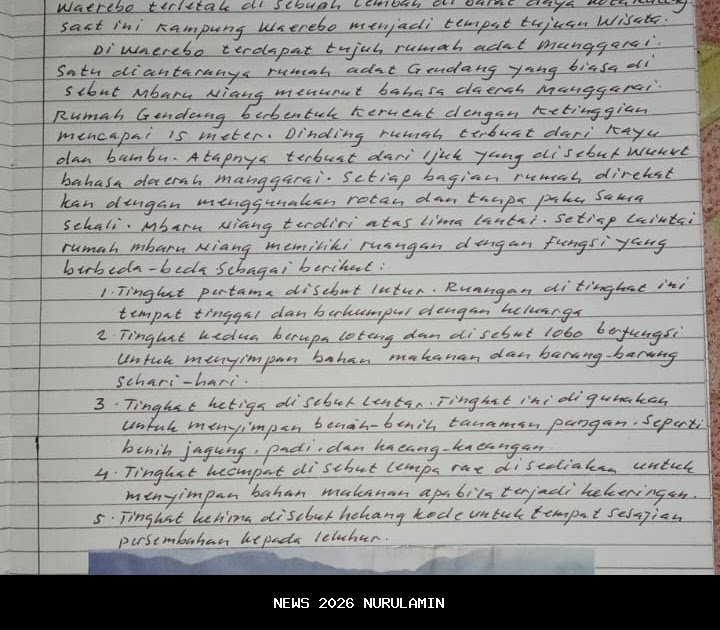 Waerebo terletak di sebuah lembah di barat daya kota Ruteng
saat ini Kampung Waerebo menjadi tempat tujuan Wisata.
Di Waerebo terdapat tujuh rumah adat Manggarai.
Satu diantaranya rumah adat Gendang yang biasa di
sebut Mbaru Niang menurut bahasa daerah Manggarai.
Rumah Gendang berbentuk Kerucut dengan Ketinggian
mencapai 15 meter. Dinding rumah terbuat dari Kayu
dan bambu. Atapnya terbuat dari Ijuk yang disebut Wunut
bahasa daerah manggarai. Setiap bagian rumah direkat
kan dengan menggunakan rotan dan tanpa paku sama
sekali. Mbaru Niang terdiri atas lima lantai. Setiap laintai
rumah mbaru Niang memiliki ruangan dengan fungsi yang
berbeda-beda Sebagai berikut :
1. Tingkat pertama disebut lutur. Ruangan di tingkat ini
tempat tinggal dan berkumpul dengan keluarga
2. Tingkat kedua berupa loteng dan di sebut lobo berfungsi
Untuk menyimpan bahan makanan dan barang-barang
sehari-hari.
3. Tingkat ketiga di sebut lentar. Tingkat ini di gunakan
Untuk menyimpan benih-benih tanaman pangan. Seperti
benih jagung, padi, dan kacang-kacangan
4. Tingkat keempat di sebut lempa rae disediakan untuk
menyimpan bahan makanan apabila terjadi kekeringan.
5. Tingkat kelima disebut hekang kode untuk tempat sesajian
persembahan kepada leluhur.
NEWS 2026 NURULAMIN